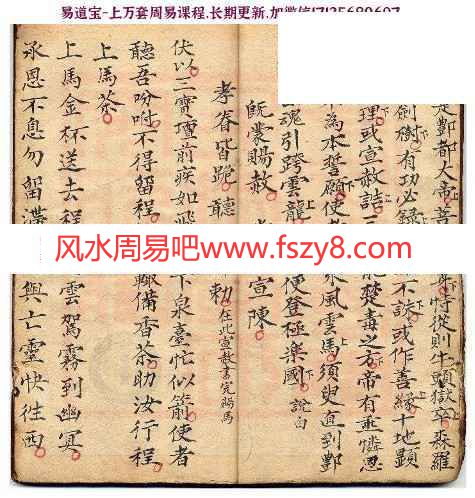 易道宝-上万套周易课程,长期更新,加微信
是酆都大帝菩 侍從則牛頭獄卒森羅
劍樹有功必錄 不誅或作善緣十地顯
理或宣赦詰三 能楚毒之方帝有垂憐恩
為本誓願使者 乘風雲馬須臾直到酆
魂引跨雲龍 便登極樂國 說白
既蒙賜赦 宣陳
孝眷皆跪聽 勅 在此宣赦書完賜馬
伏以三寶壇前疾如飛 下泉臺忙似箭使者
聽吾吩咐不得留程 輙備香茶助汝行程
上馬茶
上馬金杯送去程 雲駕霧到幽冥
承恩不息勿留滯 與亡靈快往西
风水周易吧www.fszy8.com